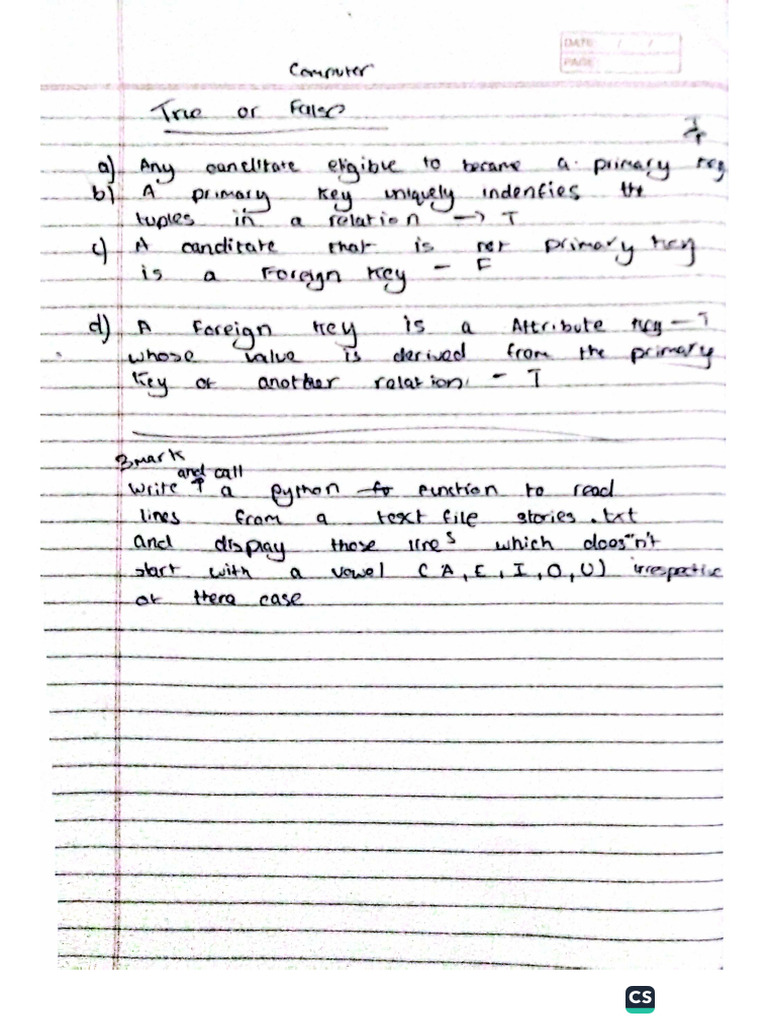 DATE: / /
PAGE:
Computer
True or False
T
a) Any canditate eligible to became a primary key
b) A primary key uniquely indenfies the
tuples in a relation → T
c) A canditate that is not primary key
is a Foreign key - F
d) A foreign key is a Attribute key - T
whose value is derived from the primary
key of another relation. - T
3 mark
and call
Write ↑ a python function to read
lines from a text file stories.txt
and display those lines which does"n't
start with a vowel (A, E, I, O, U) irrespective
of there case
CS